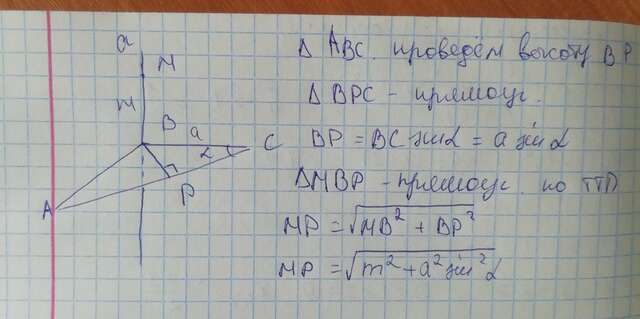 a
M
m
B
a
C
α
P
A
Δ ABC. проведём высоту BP
Δ BPC - прямоуг.
BP = BC sin α = a sin α
Δ MBP - прямоуг. по ТТП
MP = √MB² + BP²
MP = √m² + a² sin² α